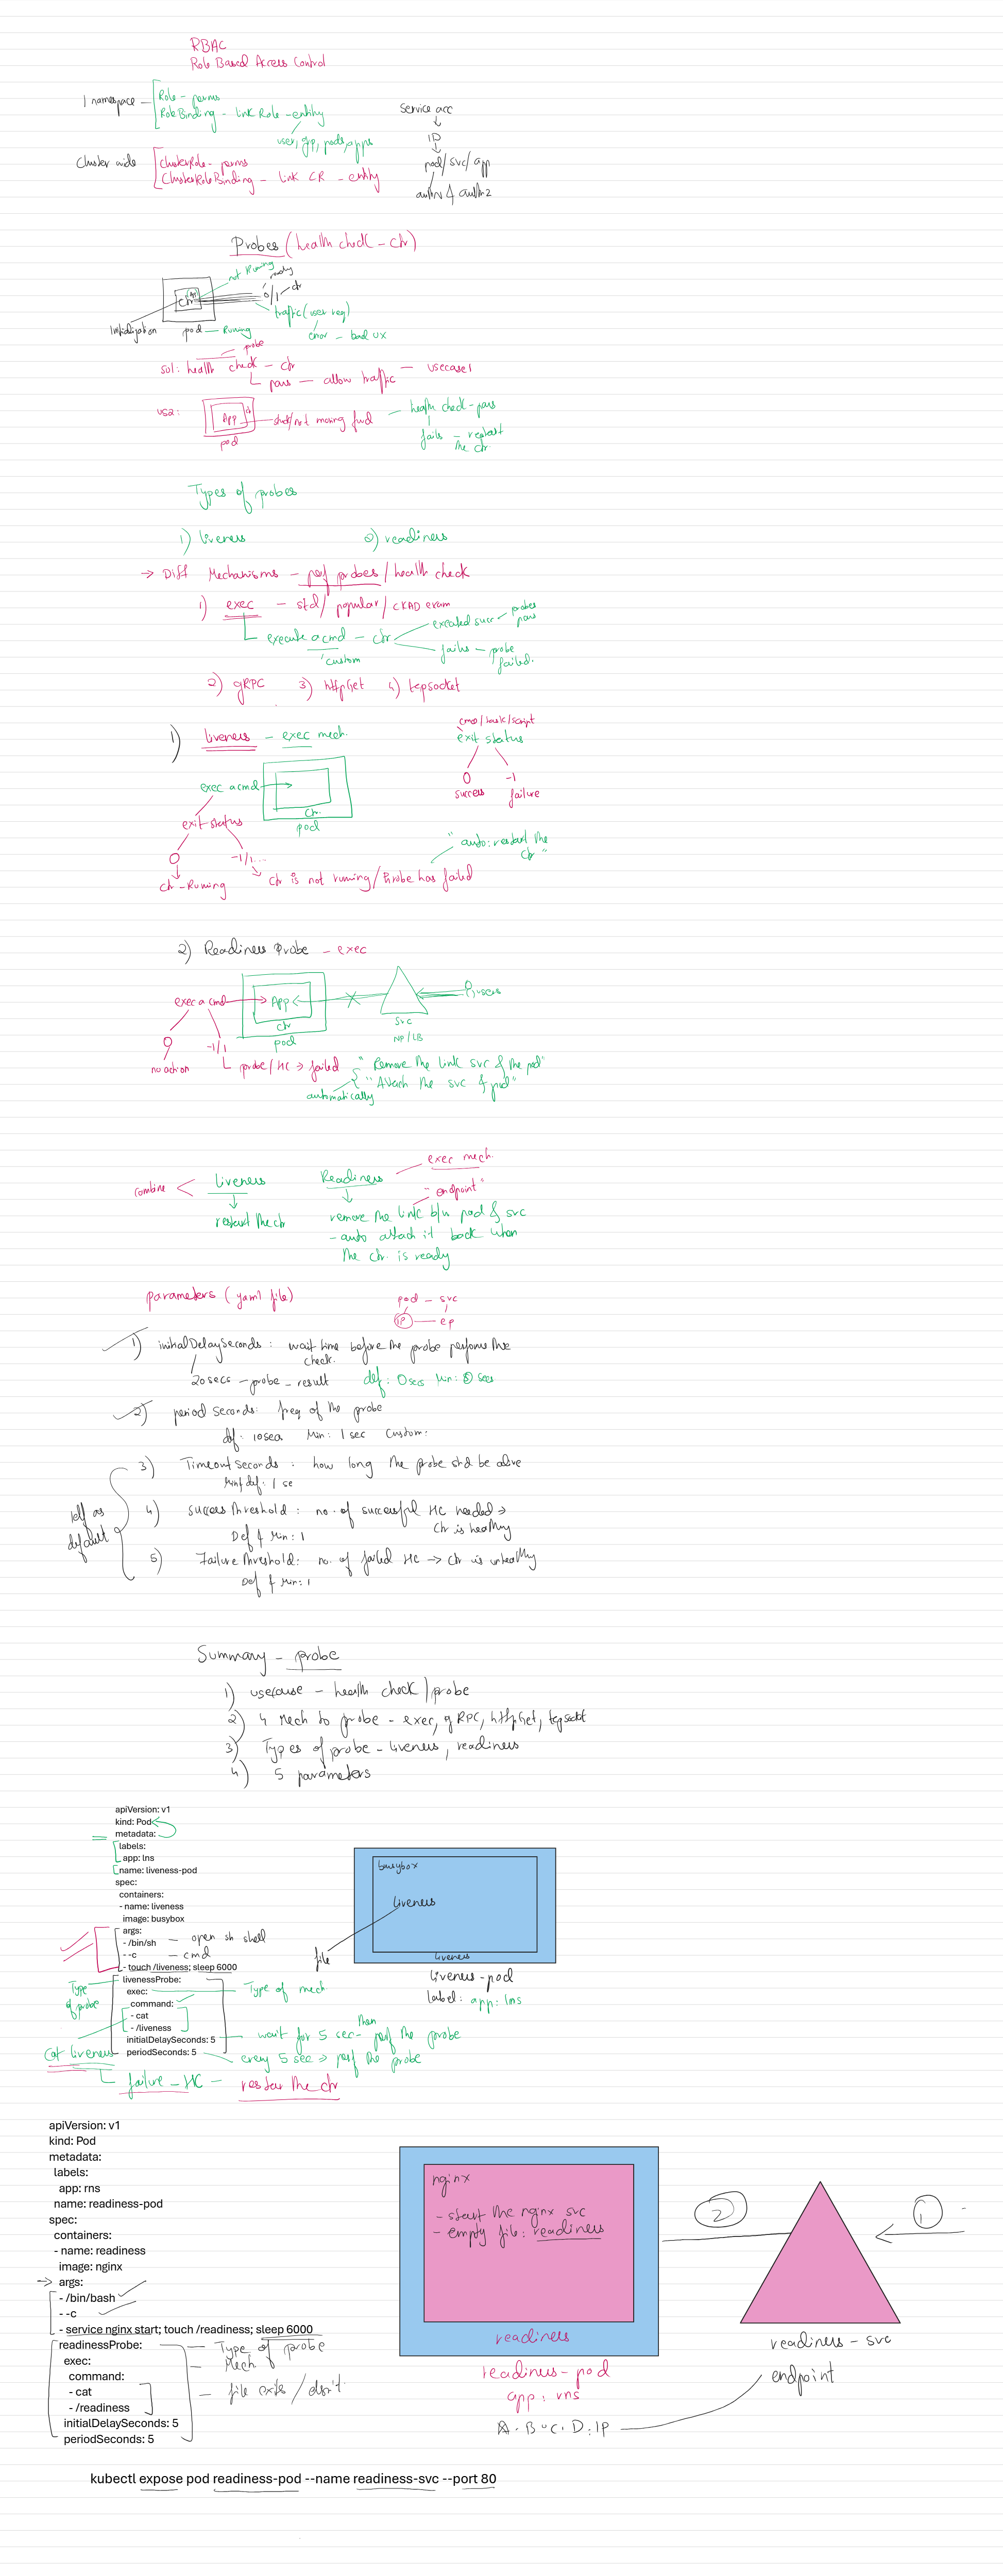 RBAC
Role Based Access Control
1 namespace
Role - perms
RoleBinding - link Role - entity
user, grp, pods, apps
Cluster wide
ClusterRole - perms
ClusterRoleBinding - link CR - entity
Service acc
ID
pod/svc/app
authN & authZ
Probes (health check - ctr)
not running
ready
0/1
ctr
ctr
traffic (user req)
error - bad ux
Initialization
pod - Running
probe
sol: health check - ctr
pass - allow traffic - usecase1
us2:
App
ctr
stuck/not moving fwd
pod
health check - pass
fails - restart the ctr
Types of probes
1) liveness
2) readiness
→ Diff Mechanisms - perf probes / health check
1) exec - std / popular / CKAD exam
execute a cmd - ctr
custom
executed succ - probes pass
fails - probe failed.
2) gRPC 3) httpGet 4) tcpsocket
1) liveness - exec mech.
cmd/task/script
exit status
0
success
-1
failure
exec a cmd
ctr
pod
exit status
0
-1/1...
ctr - Running
ctr is not running / Probe has failed
"auto: restart the ctr"
2) Readiness Probe - exec
exec a cmd
App
ctr
pod
svc
NP/LB
users
0
no action
-1/1
probe/HC → failed
"Remove the link svc & the pod"
"Attach the svc & pod"
automatically
combine
liveness
restart the ctr
Readiness
exec mech.
"endpoint"
remove the link b/w pod & svc
- auto attach it back when
the ctr. is ready
parameters (yaml file)
pod - svc
IP - ep
1) initialDelaySeconds: wait time before the probe performs the
check.
20secs - probe - result
def: 0secs Min: 0 secs
2) period Seconds: freq of the probe
def: 10secs Min: 1 sec Custom:
3) Timeout Seconds: how long the probe shd be alive
Min & def: 1 se
left as default
4) Success Threshold: no. of successful HC needed →
ctr is healthy
Def & Min: 1
5) Failure Threshold: no. of failed HC → ctr is unhealthy
Def & Min: 1
Summary - probe
1) usecase - health check / probe
2) 4 Mech to probe - exec, gRPC, httpGet, tcpsocket
3) Types of probe - liveness, readiness
4) 5 parameters
apiVersion: v1
kind: Pod
metadata:
labels:
app: lns
name: liveness-pod
spec:
containers:
- name: liveness
image: busybox
args:
- /bin/sh
open sh shell
- -c
cmd
- touch /liveness; sleep 6000
livenessProbe:
Type of probe
exec:
Type of mech.
command:
- cat
- /liveness
initialDelaySeconds: 5
wait for 5 sec - then perf the probe
periodSeconds: 5
every 5 sec → perf the probe
cat liveness
failure - HC - restart the ctr
busybox
liveness
file
liveness
liveness-pod
label: app: lns
apiVersion: v1
kind: Pod
metadata:
labels:
app: rns
name: readiness-pod
spec:
containers:
- name: readiness
image: nginx
args:
- /bin/bash
- -c
- service nginx start; touch /readiness; sleep 6000
readinessProbe:
Type of probe
exec:
Mech
command:
- cat
file exits / desn't.
- /readiness
initialDelaySeconds: 5
periodSeconds: 5
nginx
- start the nginx svc
- empty file: readiness
readiness
readiness-pod
app: rns
A.B.C.D: IP
2
1
readiness-svc
endpoint
kubectl expose pod readiness-pod --name readiness-svc --port 80